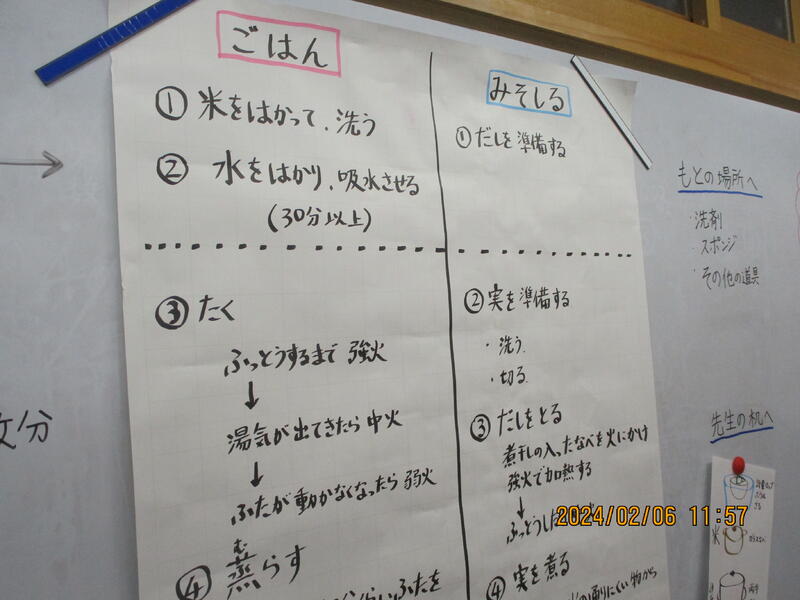 ごはん
① 米をはかって、洗う
② 水をはかり、吸水させる
(30分以上)
③ たく
ふっとうするまで 強火
↓
湯気が出てきたら 中火
↓
ふたが動かなくなったら 弱火
④ 蒸らす
む
ふたを
みそしる
① だしを準備する
② 実を準備する
・洗う
・切る
③ だしをとる
煮干しの入ったなべを火にかけ
強火で加熱する
↓
ふっとうした
④ 実を煮る
の通りにくい物から
もとの場所へ
・洗剤
・スポンジ
・その他の道具
先生の机へ
米
分
2024/02/06 11:57